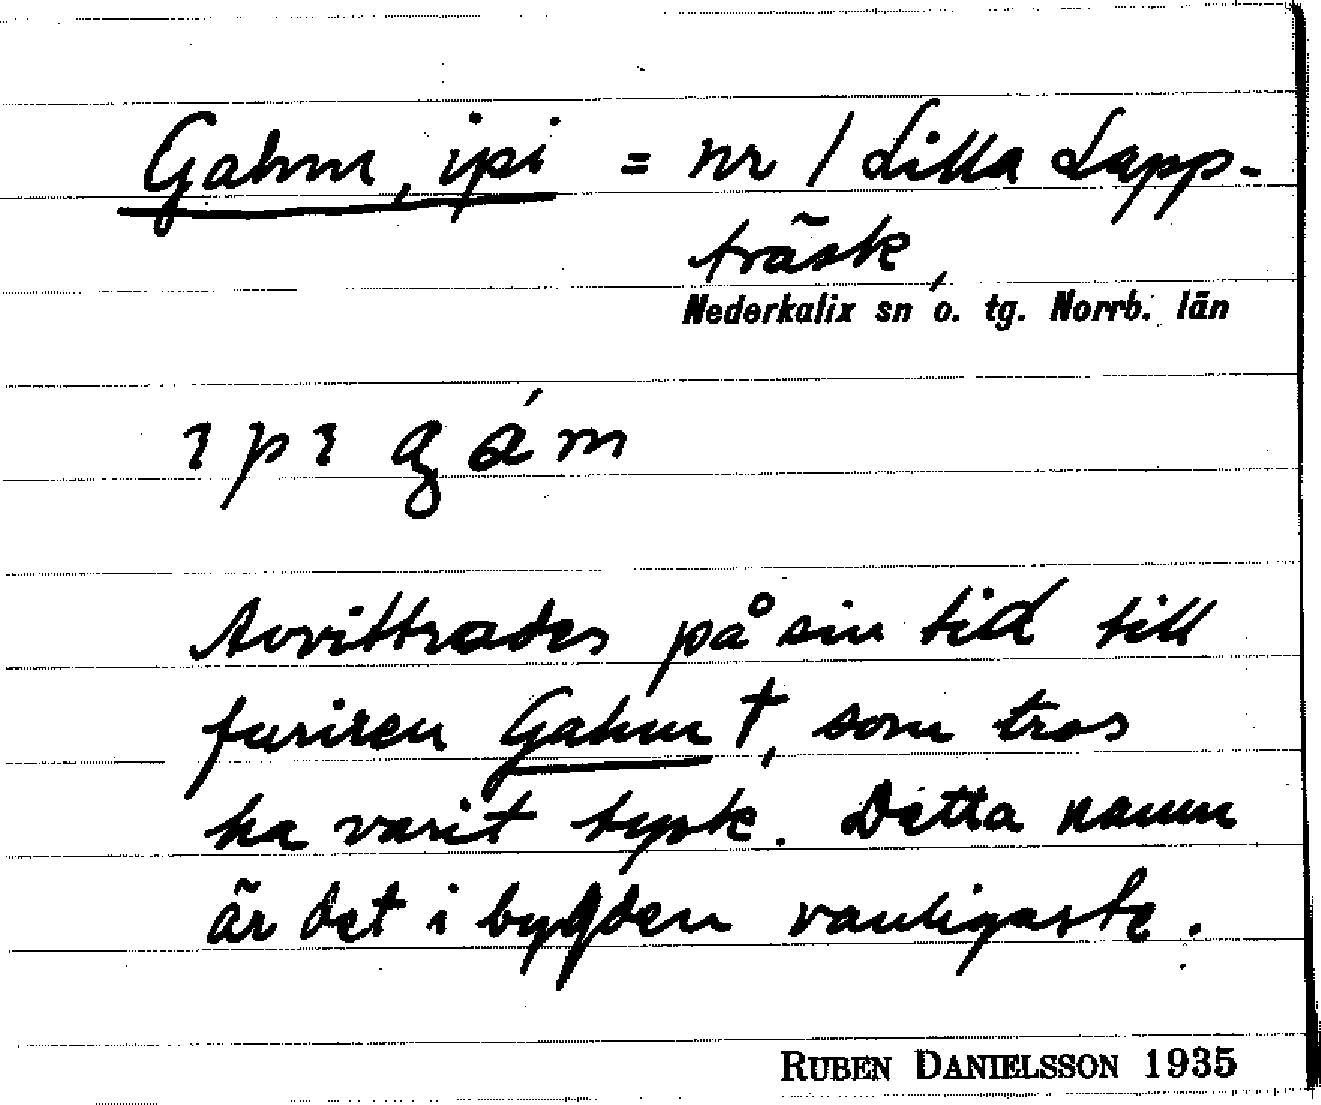 Gahm, ipi = nr 1 Lilla Lapp-
träsk,
Nederkalix sn o. tg. Norrb. län
ɿpɿ gám
Avvittrades på sin tid till
furiren Gahm †, som tros
ha varit tysk. Detta namn
är det i bygden vanligaste.
RUBEN DANIELSSON 1935